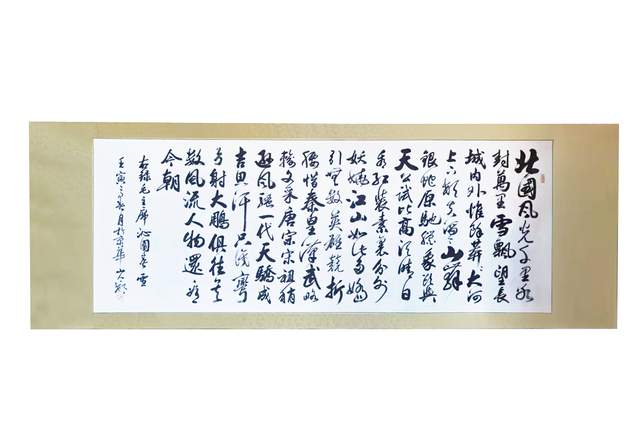 北國風光千里冰
封萬里雪飄望長
城內外惟餘莽莽大河
上下頓失滔滔山舞
銀蛇原馳蠟象欲與
天公試比高須晴日
看紅裝素裹分外
妖嬈江山如此多嬌
引無數英雄競折
腰惜秦皇漢武略
輸文采唐宗宋祖稍
遜風騷一代天驕成
吉思汗只識彎
弓射大鵰俱往矣
數風流人物還看
今朝
右錄毛主席沁園春雪
壬寅年春月於京華